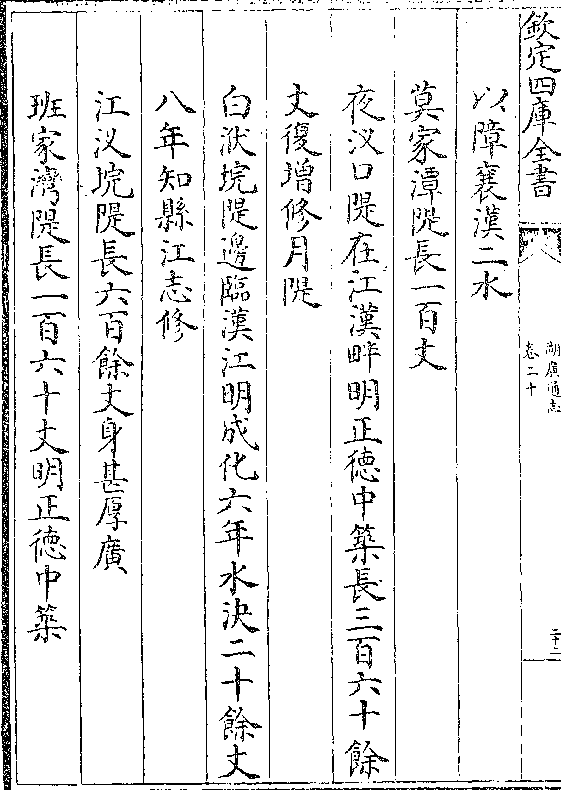 欽定四庫全書
湖廣通志
卷二十
二十二
以障襄漢二水
莫家潭隄長一百丈
夜汊口隄在江漢畔明正德中築長三百六十餘
丈復增修月隄
白洑垸隄邊臨漢江明成化六年水決二十餘丈
八年知縣江志修
江汊垸隄長六百餘丈身甚厚廣
班家灣隄長一百六十丈明正德中築